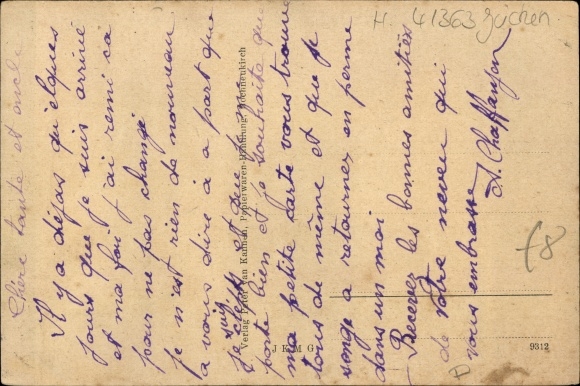 Chère tante et oncle
Il y a déjas quelques
jours que je suis arrivé
et ma foi j'ai remi ca
pour ne pas changé
je n'est rien de nouveau
a vous dire a a part que
je suis et que je me
porte bien et je souhaite que
ma petite carte vous trouve
tous de même et que je
songe a retournez en perme
dans un moi
Recevez les bonnes amitiés
de votre neveu qui
vous embrasse
Verlag Peter van Kannen, Papierwaren-Handlung, Hochneukirch
J K M G
9312
H. 41363 Jüchen
f8